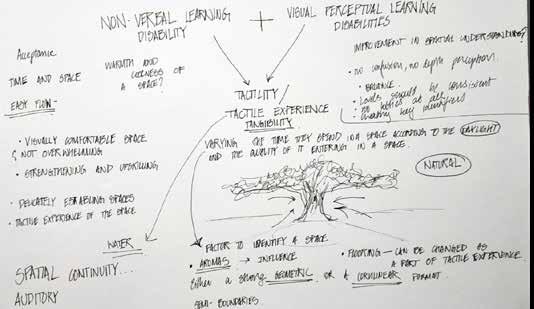 NON-VERBAL LEARNING
DISABILITY
+
VISUAL PERCEPTUAL LEARNING
DISABILITIES
Acceptance
TIME AND SPACE
EASY FLOW-
WARMTH AND
OF
A SPACE?
IMPROVEMENT IN SPATIAL UNDERSTANDING?
• no confusion, no depth perception.
BALANCE.
• Levels should be consistent
• no at all
• creating key identifiers
TACTILITY
TACTILE EXPERIENCE
TANGIBILITY
VARYING THE TIME THEY SPEND IN A SPACE ACCORDING TO THE DAYLIGHT
AND THE QUALITY OF IT ENTERING IN A SPACE.
NATURAL
• VISUALLY COMFORTABLE SPACE
& NOT OVERWHELMING
• STRENGTHENING AND UPSKILLING
• DELICATELY SPACES
• TACTILE EXPERIENCE OF THE SPACE
WATER
SPATIAL CONTINUITY...
AUDITORY
FACTOR TO IDENTIFY A SPACE
• AROMAS → INFLUENCE
Either a strong GEOMETRIC OR A CURVILINEAR FORMAT.
SEMI-BOUNDARIES.
• FLOORING — CAN BE CHANGED AS
A PART OF TACTILE EXPERIENCE